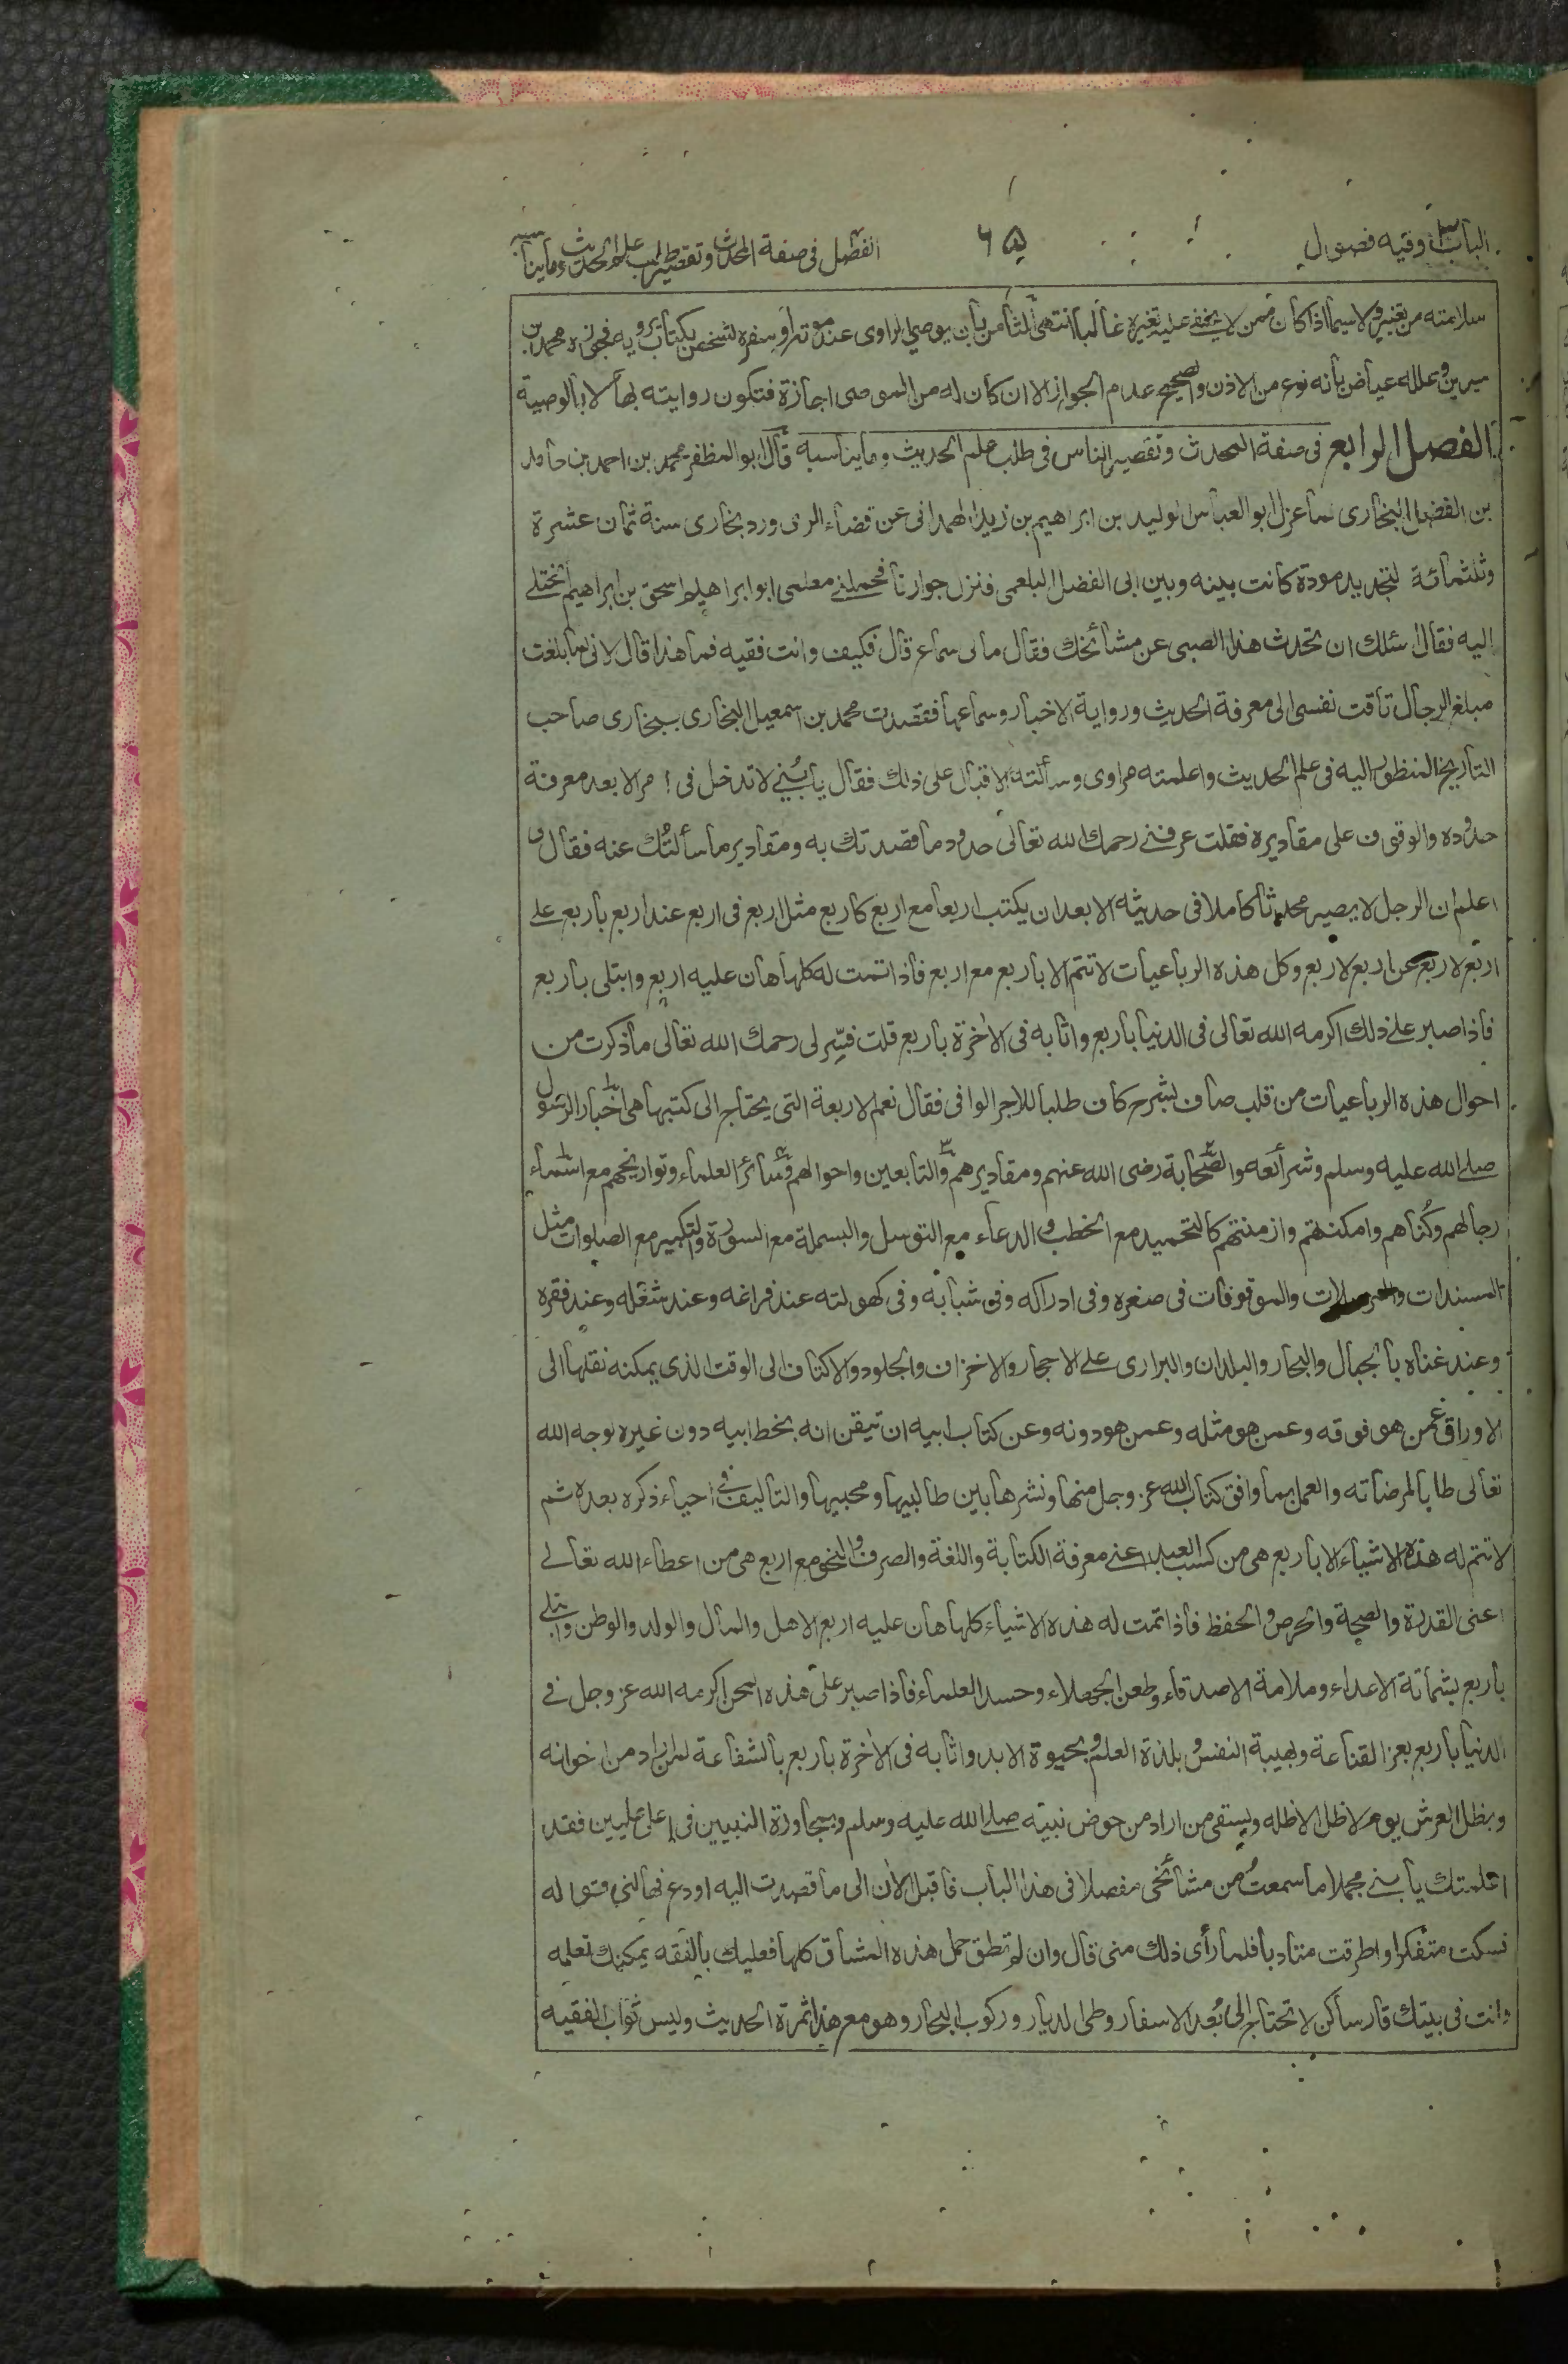 الباب ٣ وفيه فصول
٦٥
الفصل فى صفة المحدث وتقصير طلب علم الحديث وما يناسبه
سلامته من تغيير ولا سيما اذا كان ممن لا يخفى عليه تغيره غالبا انتهى الثامن بان يوصي الراوى عند موته او سفره لشخص بكتاب يرويه فجوزه محمد بن
سيرين وعلله عياض بانه نوع من الاذن والصحيح عدم الجواز الا ان كان له من الموصى اجازة فتكون روايته بها لا بالوصية
الفصل الرابع فى صفة المحدث وتقصير الناس فى طلب علم الحديث وما يناسبه قال ابو المظفر محمد بن احمد بن حامد
بن الفضل البخارى لما عزل ابو العباس الوليد بن ابراهيم بن زيد الهمدانى عن قضاء الرى ورد بخارى سنة ثمان عشرة
وثلثمائة لتجديد مودة كانت بينه وبين ابى الفضل البلعمى فنزل جوارنا فحملنى معلمى ابو ابراهيم اسحق بن ابراهيم الختلے
اليه فقال اسئلك ان تحدث هذا الصبى عن مشائخك فقال مالى سماع قال فكيف وانت فقيه فما هذا قال لانى لما بلغت
مبلغ الرجال تاقت نفسى الى معرفة الحديث ورواية الاخبار وسماعها فقصدت محمد بن اسمعيل البخارى ببخارى صاحب
التاريخ المنظور اليه فى علم الحديث واعلمته مراوى وسألته الاقبال على ذلك فقال يا بُنَيَّ لا تدخل فى امر الا بعد معرفة
حدوده والوقوف على مقاديره فقلت عرفنے رحمك الله تعالى حدود ما قصدتك به ومقادير ما سألتُك عنه فقال لى
اعلم ان الرجل لا يصير محدثا كاملا فى حديثه الا بعد ان يكتب اربعا مع اربع كاربع مثل اربع فى اربع عند اربع باربع علے
اربع لاربع عن اربع لاربع وكل هذه الرباعيات لا تتم الا باربع مع اربع فاذا تمت له كلها هان عليه اربع وابتلى باربع
فاذا صبر علے ذلك اكرمه الله تعالى فى الدنيا باربع واثابه فى الاخرة باربع قلت فسّر لى رحمك الله تعالى ما ذكرت من
احوال هذه الرباعيات من قلب صاف بشرح كاف طلبا للاجر الوافى فقال نعم الاربعة التى يحتاج الى كتبها هى اخبار الرسول
صلے الله عليه وسلم وشرائعه والصحابة رضى الله عنهم ومقاديرهم والتابعين واحوالهم وسائر العلماء وتواريخهم مع اسماء
رجالهم وكُناهم وامكنتهم وازمنتهم كالتحميد مع الخطب والدعاء مع التوسل والبسملة مع السورة والتكبير مع الصلوات مثل
المسندات والمرسلات والموقوفات فى صغره وفى ادراكه وفى شبابه وفى كهولته عند فراغه وعند شغله وعند فقره
وعند غناه بالجبال والبحار والبلدان والبرارى علے الاحجار والاخزاف والجلود والاكتاف الى الوقت الذى يمكنه نقلها الى
الاوراق عمن هو فوقه وعمن هو مثله وعمن هو دونه وعن كتاب ابيه ان تيقن انه بخط ابيه دون غيره لوجه الله
تعالى طالبا لمرضاته والعمل بما وافق كتاب الله عز وجل منها ونشرها بين طالبيها ومحبيها والتاليف فى احياء ذكره بعده ثم
لا تتم له هذه الاشياء الا باربع هى من كسب العبد اعنى معرفة الكتابة واللغة والصرف والنحو مع اربع هى من اعطاء الله تعالے
اعنى القدرة والصحة والحرص والحفظ فاذا تمت له هذه الاشياء كلها هان عليه اربع الاهل والمال والولد والوطن وابتلى
باربع بشماتة الاعداء وملامة الاصدقاء وطعن الجهلاء وحسد العلماء فاذا صبر على هذه المحن اكرمه الله عز وجل فى
الدنيا باربع بعز القناعة وبهيبة النفس وبلذة العلم وبحيوة الابد واثابه فى الاخرة باربع بالشفاعة لمن اراد من اخوانه
وبظل العرش يوم لا ظل الا ظله ويسقى من اراد من حوض نبيه صلے الله عليه وسلم وبجاورة النبيين فى اعلى عليين فقد
اعلمتك يا بنے مجملا ما سمعتُ من مشائخى مفصلا فى هذا الباب فاقبل الان الى ما قصدت اليه او دع فهالنى قوله
فسكت متفكرا واطرقت متادبا فلما رأى ذلك منى قال وان لم تطق حمل هذه المشاق كلها فعليك بالفقه يمكنك تعلمه
وانت فى بيتك قار ساكن لا تحتاج الى بُعد الاسفار وطى الديار وركوب البحار وهو مع هذا ثمرة الحديث وليس ثواب الفقيه